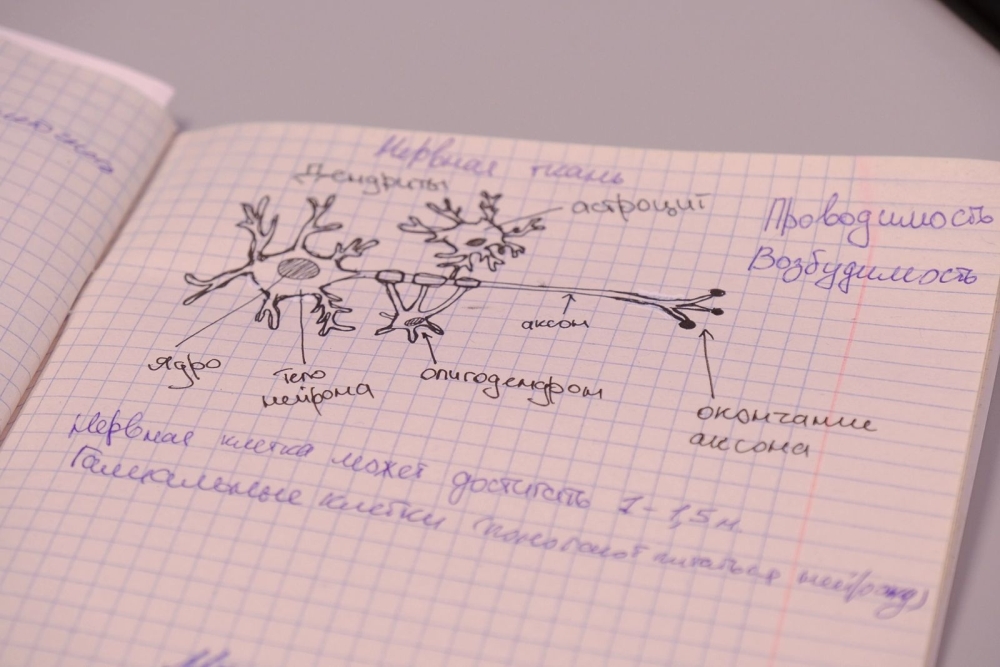 Нервная ткань
Дендриты
астроцит
Проводимость
Возбудимость
аксон
ядро
тело
нейрона
олигодендром
окончание
аксона
Нервная клетка может достигать 1-1,5 м
Галиальные клетки (помогают питаться нейрону)